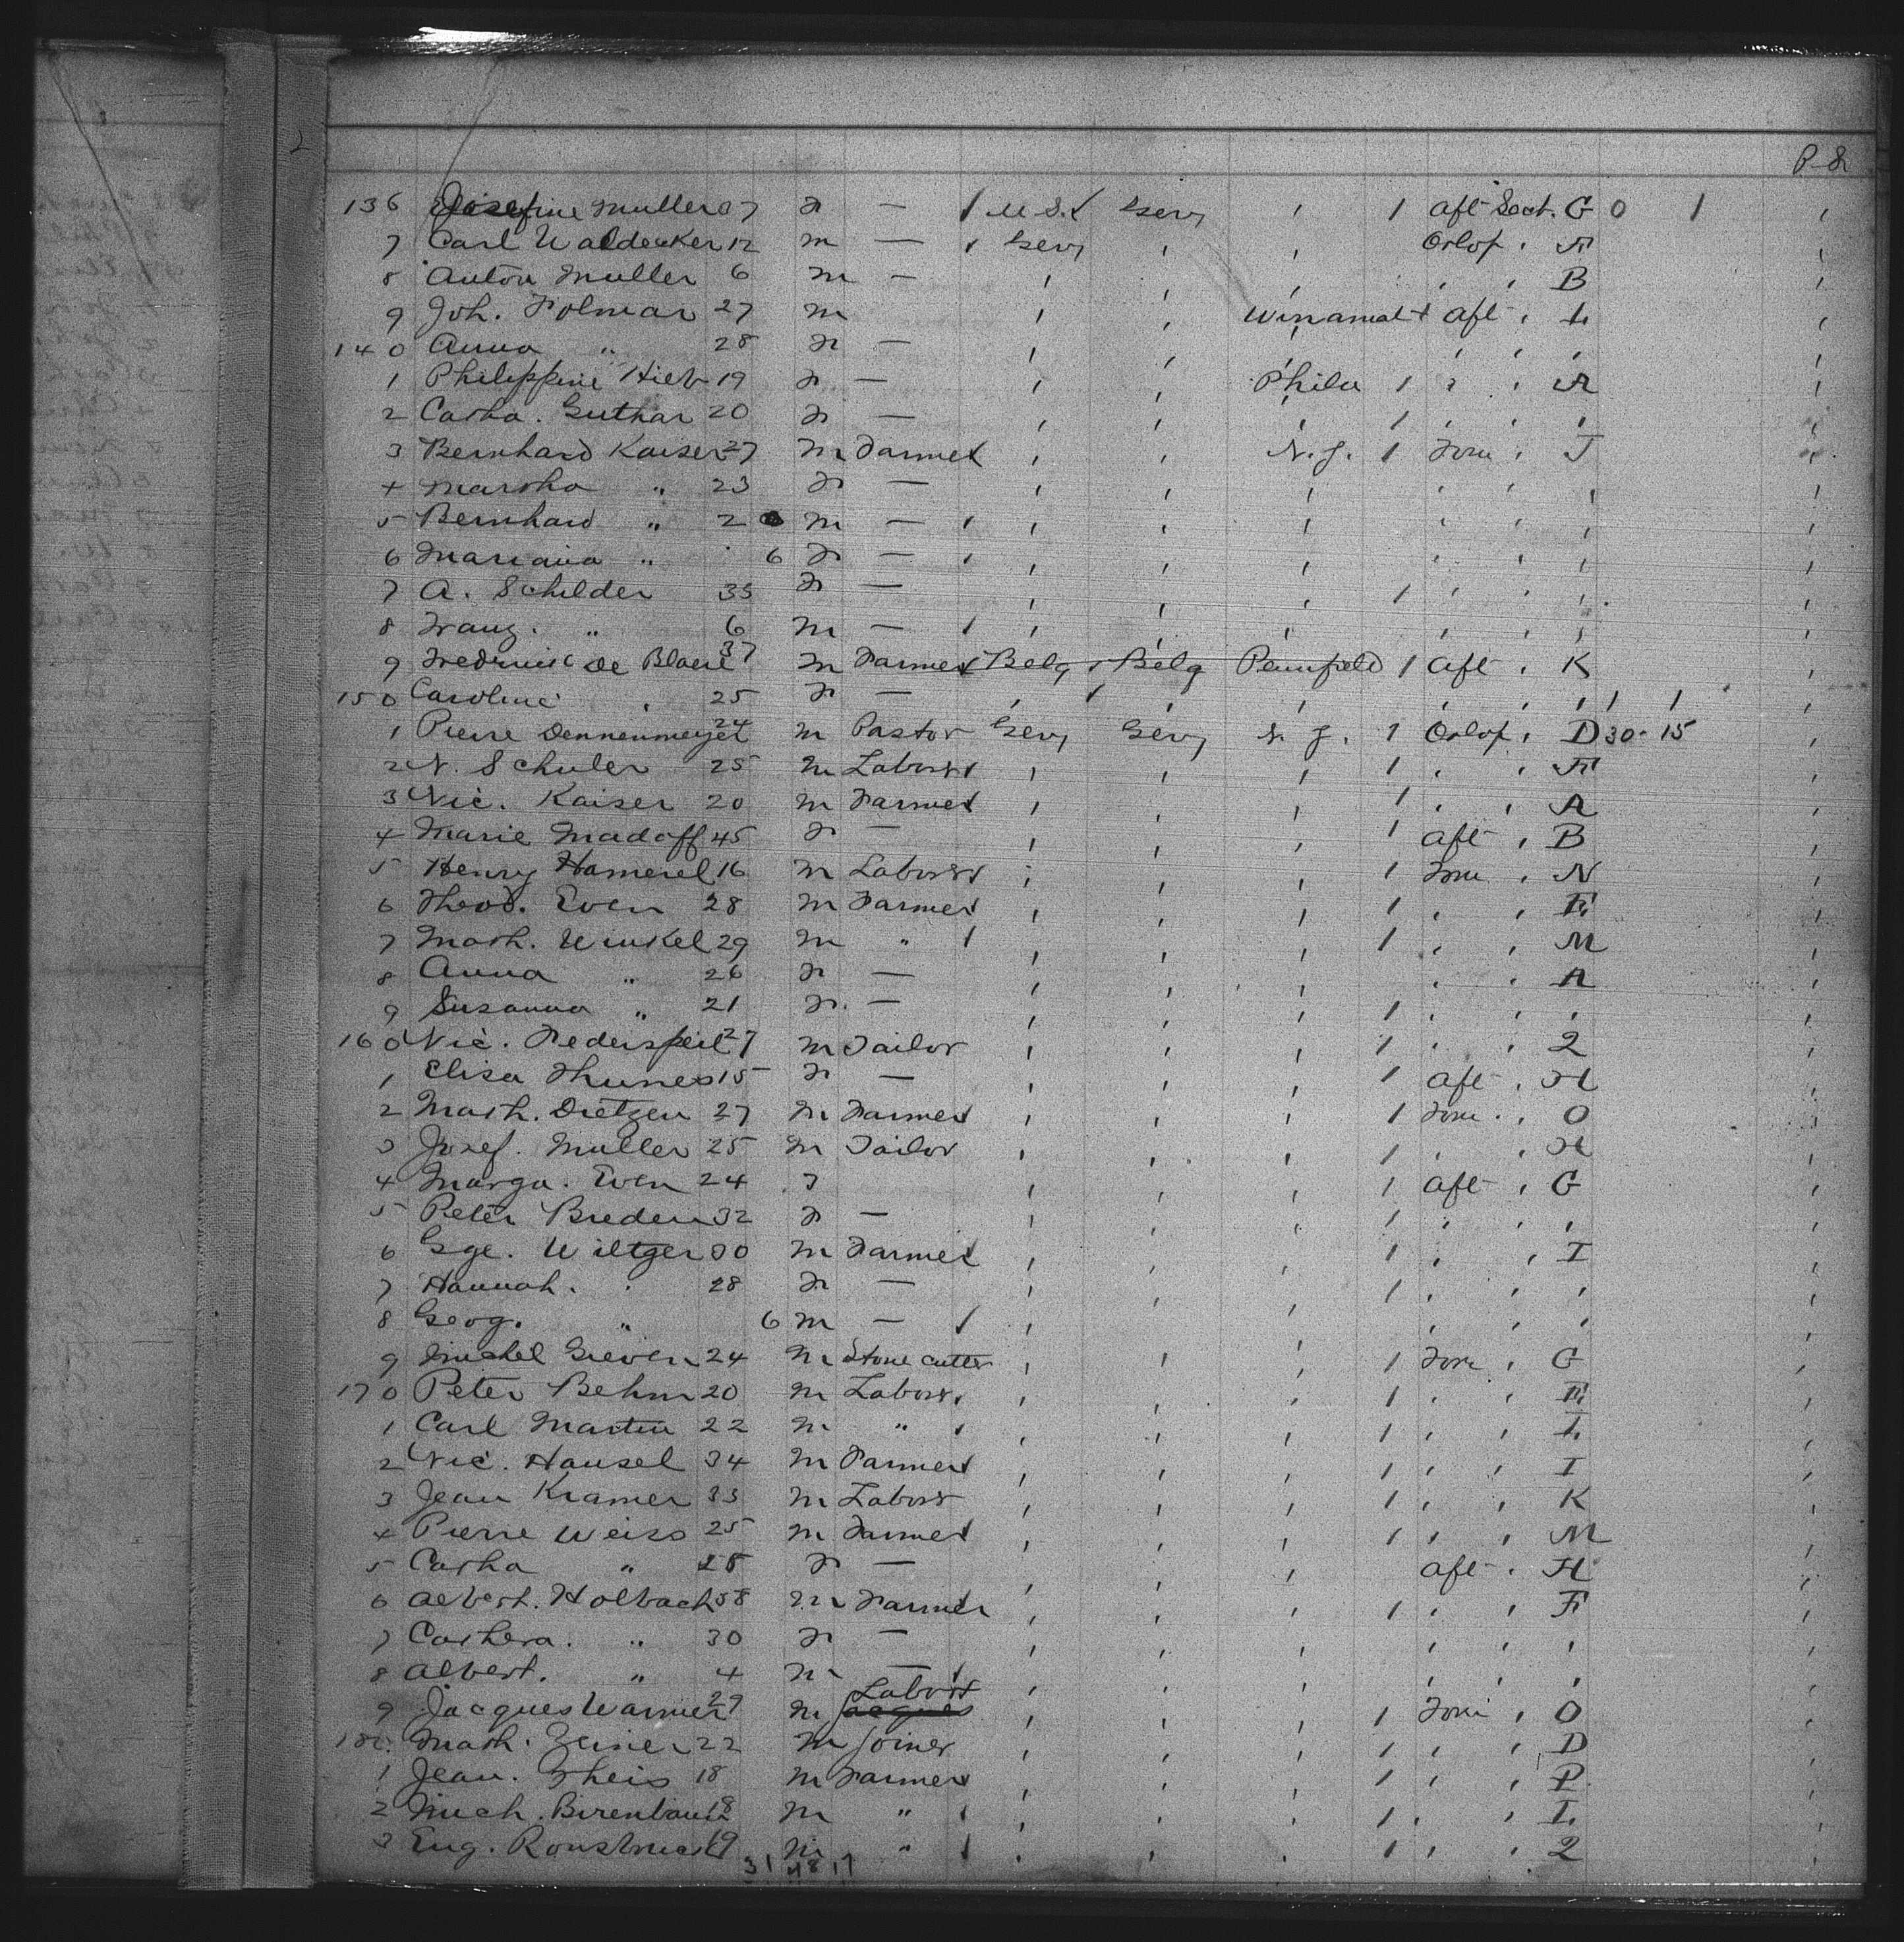 2
P-S
136 Josefine Muller 37 F — / U.S. / Gery ' 1 Aft Sect. G 0 1 '
7 Carl Waldecker 12 M — / Gery ' ' Orlop ' F '
8 Anton Muller 6 M — ' ' ' ' ' B '
9 Joh. Folmar 27 M ' ' Winamat + Aft ' L '
140 Anna " 28 F — ' ' ' ' ' ' '
1 Philippine Hieb 19 F — ' ' Phila 1 ' ' A '
2 Catha. Guthar 20 F — ' ' ' 1 ' ' ' '
3 Bernhard Kaiser 27 M Farmer ' ' N.J. 1 Forw ' J
4 Martha " 23 F — ' ' ' ' ' ' '
5 Bernhard " 2 M — / ' ' ' ' ' ' '
6 Mariana " 6 F — / ' ' ' ' ' ' '
7 A. Schilder 35 F — ' ' ' 1 ' ' ' '
8 Franz. " 6 M — / ' ' ' ' ' ' '
9 Fredrick De Blaere 37 M Farmer Belg ' Belg Pennfield 1 Aft ' K
150 Caroline ' 25 F — ' / ' ' ' ' ' 1 1 '
1 Pierre Dennenmeyer 24 M Pastor Gery Gery N.J. 1 Orlop ' D 30- 15 '
2 N. Schuler 25 M Laborer ' ' ' 1 ' ' F '
3 Nic. Kaiser 20 M Farmer ' ' ' 1 ' ' A '
4 Marie Madoff 45 F — ' ' ' 1 Aft ' B '
5 Henry Hamerel 16 M Laborer ' ' ' 1 Forw ' N '
6 Theod. Even 28 M Farmer ' ' ' 1 ' ' E '
7 Math. Winkel 29 M " / ' ' ' 1 ' ' M '
8 Anna " 26 F — ' ' ' ' ' A '
9 Susanna " 21 F. — ' ' ' 1 ' ' ' '
160 Nic. Federspeil 27 M Tailor ' ' ' 1 ' ' 2 '
1 Elisa Thunes 15 F — ' ' ' 1 Aft ' H '
2 Math. Dietzen 27 M Farmer ' ' ' 1 Forw ' O '
3 Josef. Muller 25 M Tailor ' ' ' 1 ' ' H '
4 Marga. Even 24 F ' ' ' 1 Aft ' G '
5 Peter Breden 32 F — ' ' ' 1 ' ' ' '
6 Gge. Wiltger 30 M Farmer ' ' ' 1 ' ' I '
7 Hannah. ' 28 F — ' ' ' 1 ' ' ' '
8 Georg. " 6 M — / ' ' ' ' ' ' '
9 Michel Greven 24 M Stone cutter ' ' ' 1 Forw ' G '
170 Peter Behm 20 M Laborer ' ' ' 1 ' ' E '
1 Carl Martin 22 M " ' ' ' ' 1 ' ' L '
2 Nic. Hausel 34 M Farmer ' ' ' 1 ' ' I '
3 Jean Kramer 33 M Laborer ' ' ' 1 ' ' K '
4 Pierre Weiss 25 M Farmer ' ' ' 1 ' ' M '
5 Catha " 28 F — ' ' ' Aft ' H '
6 Albert. Holbach 58 M Farmer ' ' ' 1 ' ' F '
7 Cathera. " 30 F — ' ' ' ' ' ' '
8 Albert. " 4 M — / ' ' ' ' ' ' '
9 Jacques Warnier 27 M Jacques Laborer ' ' ' 1 Forw ' O '
180. Math. Zeiner 22 M Joiner ' ' ' 1 ' ' D '
1 Jean. Theis 18 M Farmer ' ' ' 1 ' ' P '
2 Mich. Birenbaum 18 M " / ' ' ' 1 ' ' L '
3 Eug. 19 M " / ' ' ' 1 ' ' 2 '
31 48 17